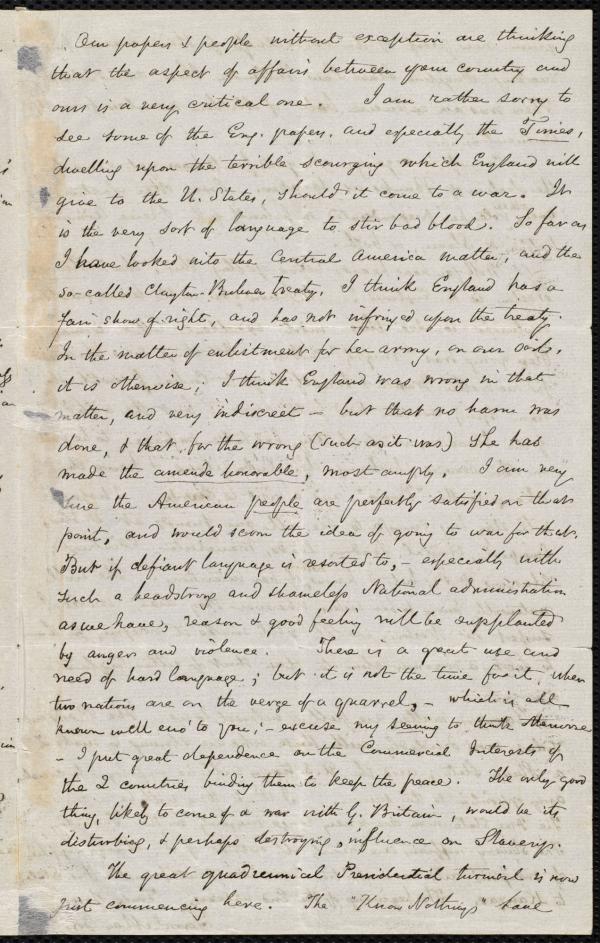 Our papers & people without exception are thinking
that the aspect of affairs between your country and
ours is a very critical one. I am rather sorry to
see some of the Eng. papers, and especially the Times,
dwelling upon the terrible scourging which England will
give to the U. States, should it come to a war. It
is the very sort of language to stir bad blood. So far as
I have looked into the Central America matter, and the
so-called Clayton-Bulwer treaty, I think England has a
fair show of right, and has not infringed upon the treaty.
In the matter of enlistment for her army, on our soil,
it is otherwise; I think England was wrong in that
matter, and very indiscreet – but that no harm was
done, & that, for the wrong (such as it was) she has
made the amende honorable, most amply. I am very
sure the American people are perfectly satisfied on that
point, and would scorn the idea of going to war for that.
But if defiant language is resorted to, – especially with
such a headstrong and shameless National administration
as we have, reason & good feeling will be supplanted
by anger and violence. There is a great use and
need of hard language; but it is not the time for it, when
two nations are on the verge of a quarrel, – which is all
known well eno' to you; – excuse my seeming to think otherwise
– I put great dependence on the Commercial Interests of
the 2 countries binding them to keep the peace. The only good
thing, likely to come of a war with G. Britain, would be its
disturbing, & perhaps destroying, influence on Slavery.
The great quadrennial Presidential turmoil is now
just commencing here. The "Know Nothings" have